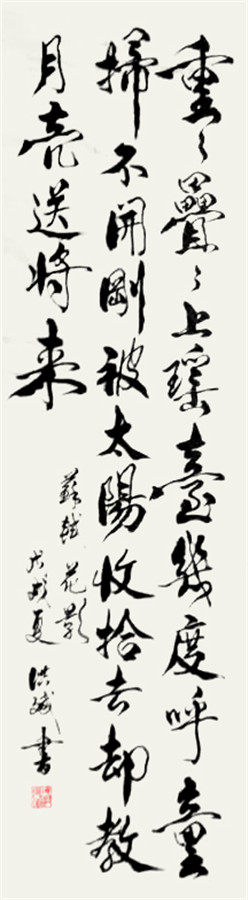 重〻疊〻上瑤臺幾度呼童
掃不開剛被太陽收拾去却教
月亮送將来
蘇軾 花影
戊戌夏 洪斌書